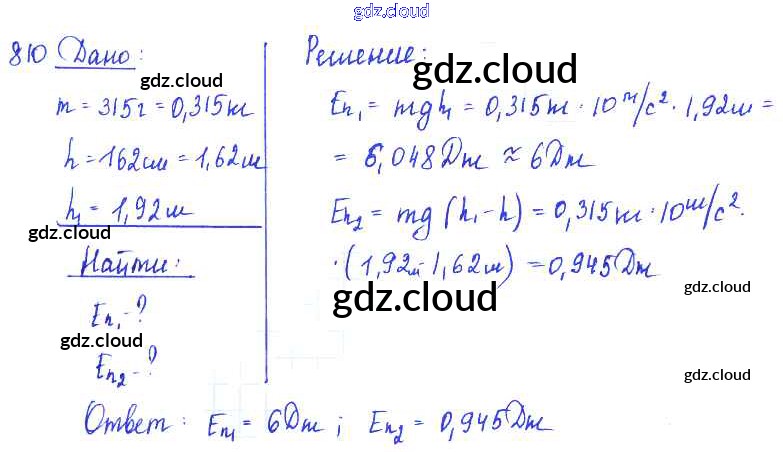 gdz.cloud
810 Дано:
gdz.cloud
m = 315г = 0,315кг
h = 162см = 1,62м
h₁ = 1,92м
gdz.cloud
Найти:
Eп₁ - ?
gdz.cloud
Eп₂ - ?
Решение:
gdz.cloud
Eп₁ = mgh₁ = 0,315кг · 10 м/с² · 1,92м =
= 6,048Дж ≈ 6Дж
Eп₂ = mg (h₁ - h) = 0,315кг · 10м/с² ·
· (1,92м - 1,62м) = 0,945Дж
gdz.cloud
gdz.cloud
gdz.cloud
Ответ: Eп₁ = 6Дж; Eп₂ = 0,945Дж